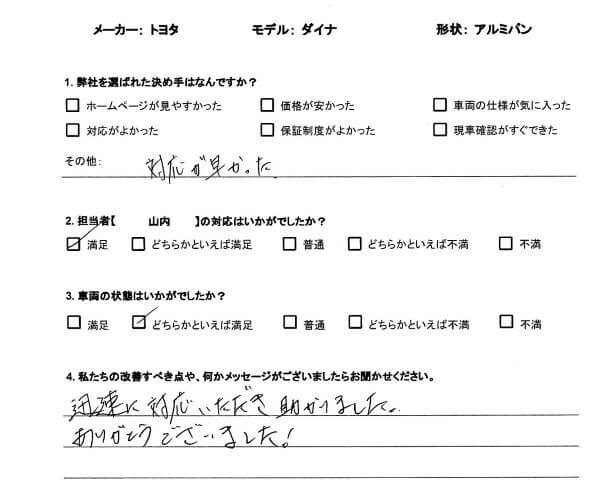 メーカー： トヨタ モデル： ダイナ 形状： アルミバン
1. 弊社を選ばれた決め手はなんですか？
□ ホームページが見やすかった □ 価格が安かった □ 車両の仕様が気に入った
□ 対応がよかった □ 保証制度がよかった □ 現車確認がすぐできた
その他： 対応が早かった
2. 担当者【 山内 】の対応はいかがでしたか？
☑ 満足 □ どちらかといえば満足 □ 普通 □ どちらかといえば不満 □ 不満
3. 車両の状態はいかがでしたか？
□ 満足 ☑ どちらかといえば満足 □ 普通 □ どちらかといえば不満 □ 不満
4. 私たちの改善すべき点や、何かメッセージがございましたらお聞かせください。
迅速に対応いただき助かりました。
ありがとうございました！